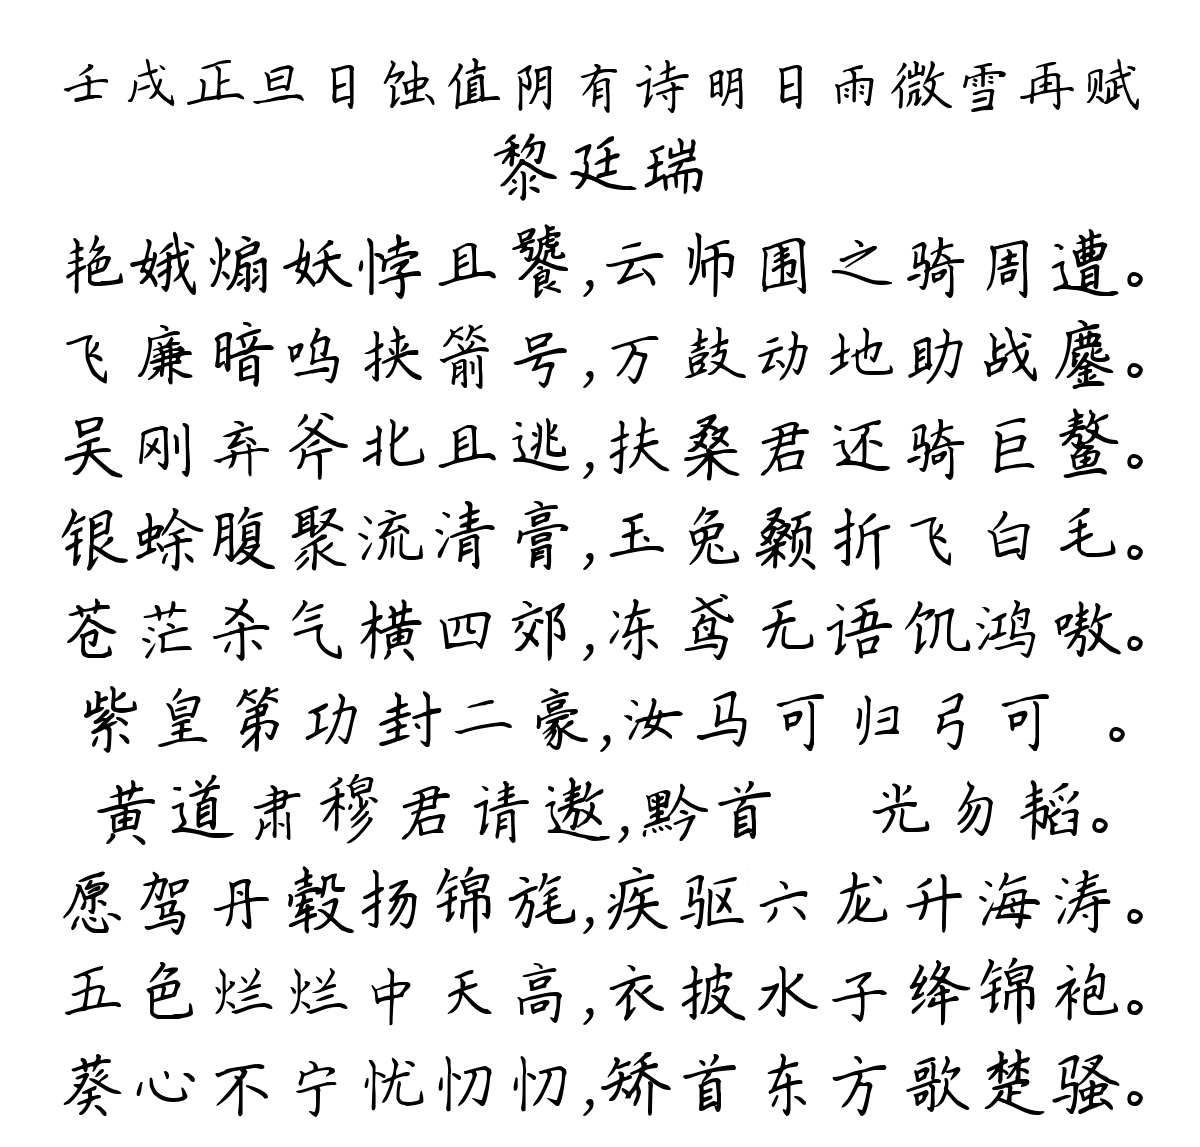 壬戌正旦日蚀值阴有诗明日雨微雪再赋
黎廷瑞
艳娥煽妖悖且饕,云师围之骑周遭。
飞廉暗呜挟箭号,万鼓动地助战鏖。
吴刚弃斧北且逃,扶桑君还骑巨鳌。
银蜍腹聚流清膏,玉兔颡折飞白毛。
苍茫杀气横四郊,冻鸢无语饥鸿嗷。
紫皇第功封二豪,汝马可归弓可 。
黄道肃穆君请遨,黔首 光勿韬。
愿驾丹毂扬锦旄,疾驱六龙升海涛。
五色烂烂中天高,衣披水子绛锦袍。
葵心不宁忧忉忉,矫首东方歌楚骚。